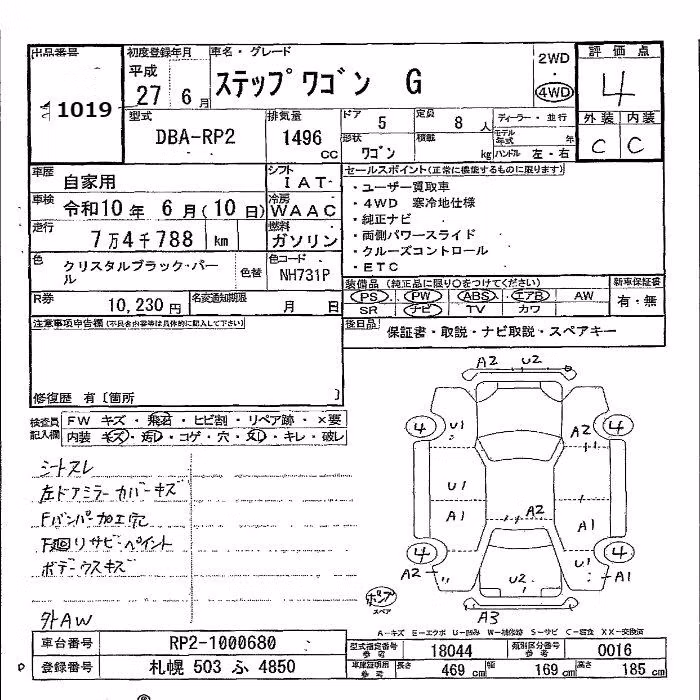 出品番号 初度登録年月 車名・グレード 評価点
1019 平成 27 6月 ステップワゴン G 2WD 4WD 4
型式 排気量 ドア 定員 ディーラー・並行 外装 内装
DBA-RP2 1496 CC 5 8 人 モデル年式 年 C C
形状 ワゴン 積載 kg ハンドル 左・右
車歴 自家用 シフト IAT セールスポイント(正常に機能するものに限ります)
車検 令和10年 6月(10日) 冷房 WAAC ・ユーザー買取車
・4WD 寒冷地仕様
走行 7万4千788 km 燃料 ガソリン ・純正ナビ
・両側パワースライド
・クルーズコントロール
色 クリスタルブラック・パール 色替 色コード NH731P ・ETC
装備品(純正品に限り○をつけてください) 新車保証書
R券 10,230円 名変通知期限 月 日 PS PW ABS エアB AW 有・無
SR ナビ TV カワ
注意事項申告欄(不具合内容等は具体的に記入して下さい) 後日品 保証書・取説・ナビ取説・スペアキー
修復歴 有〔箇所 〕
検査員記入欄 FW キズ・飛石・ヒビ割・リペア跡・×要
内装 キズ・汚レ・コゲ・穴・スレ・キレ・破レ
シートスレ
左ドアミラーカバーキズ
Fバンパー加工穴
下廻りサビ・ペイント
ボデーウスキズ
外AW
A2 U2
4 U1 A2 4
U1
A1 A2 A1
4 U1 4
A2 U2 A1
スペア A3
A-キズ E-エクボ U-凹み W-補修跡 S-サビ C-腐食 XX-交換済
車台番号 RP2-1000680 型式指定番号 参考 18044 類別区分番号 参考 0016
登録番号 札幌 503 ふ 4850 車庫証明用 参考 長さ 469 cm 幅 169 cm 高さ 185 cm